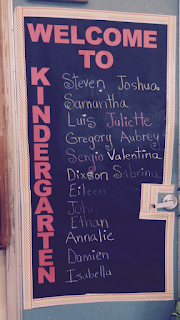 WELCOME
TO
KINDERGARTEN
Steven Joshua
Samantha
Luis Juliette
Gregory Aubrey
Sergio Valentina
Dixson Sabrina
Eileen
John
Ethan
Annalie
Damien
Isabella